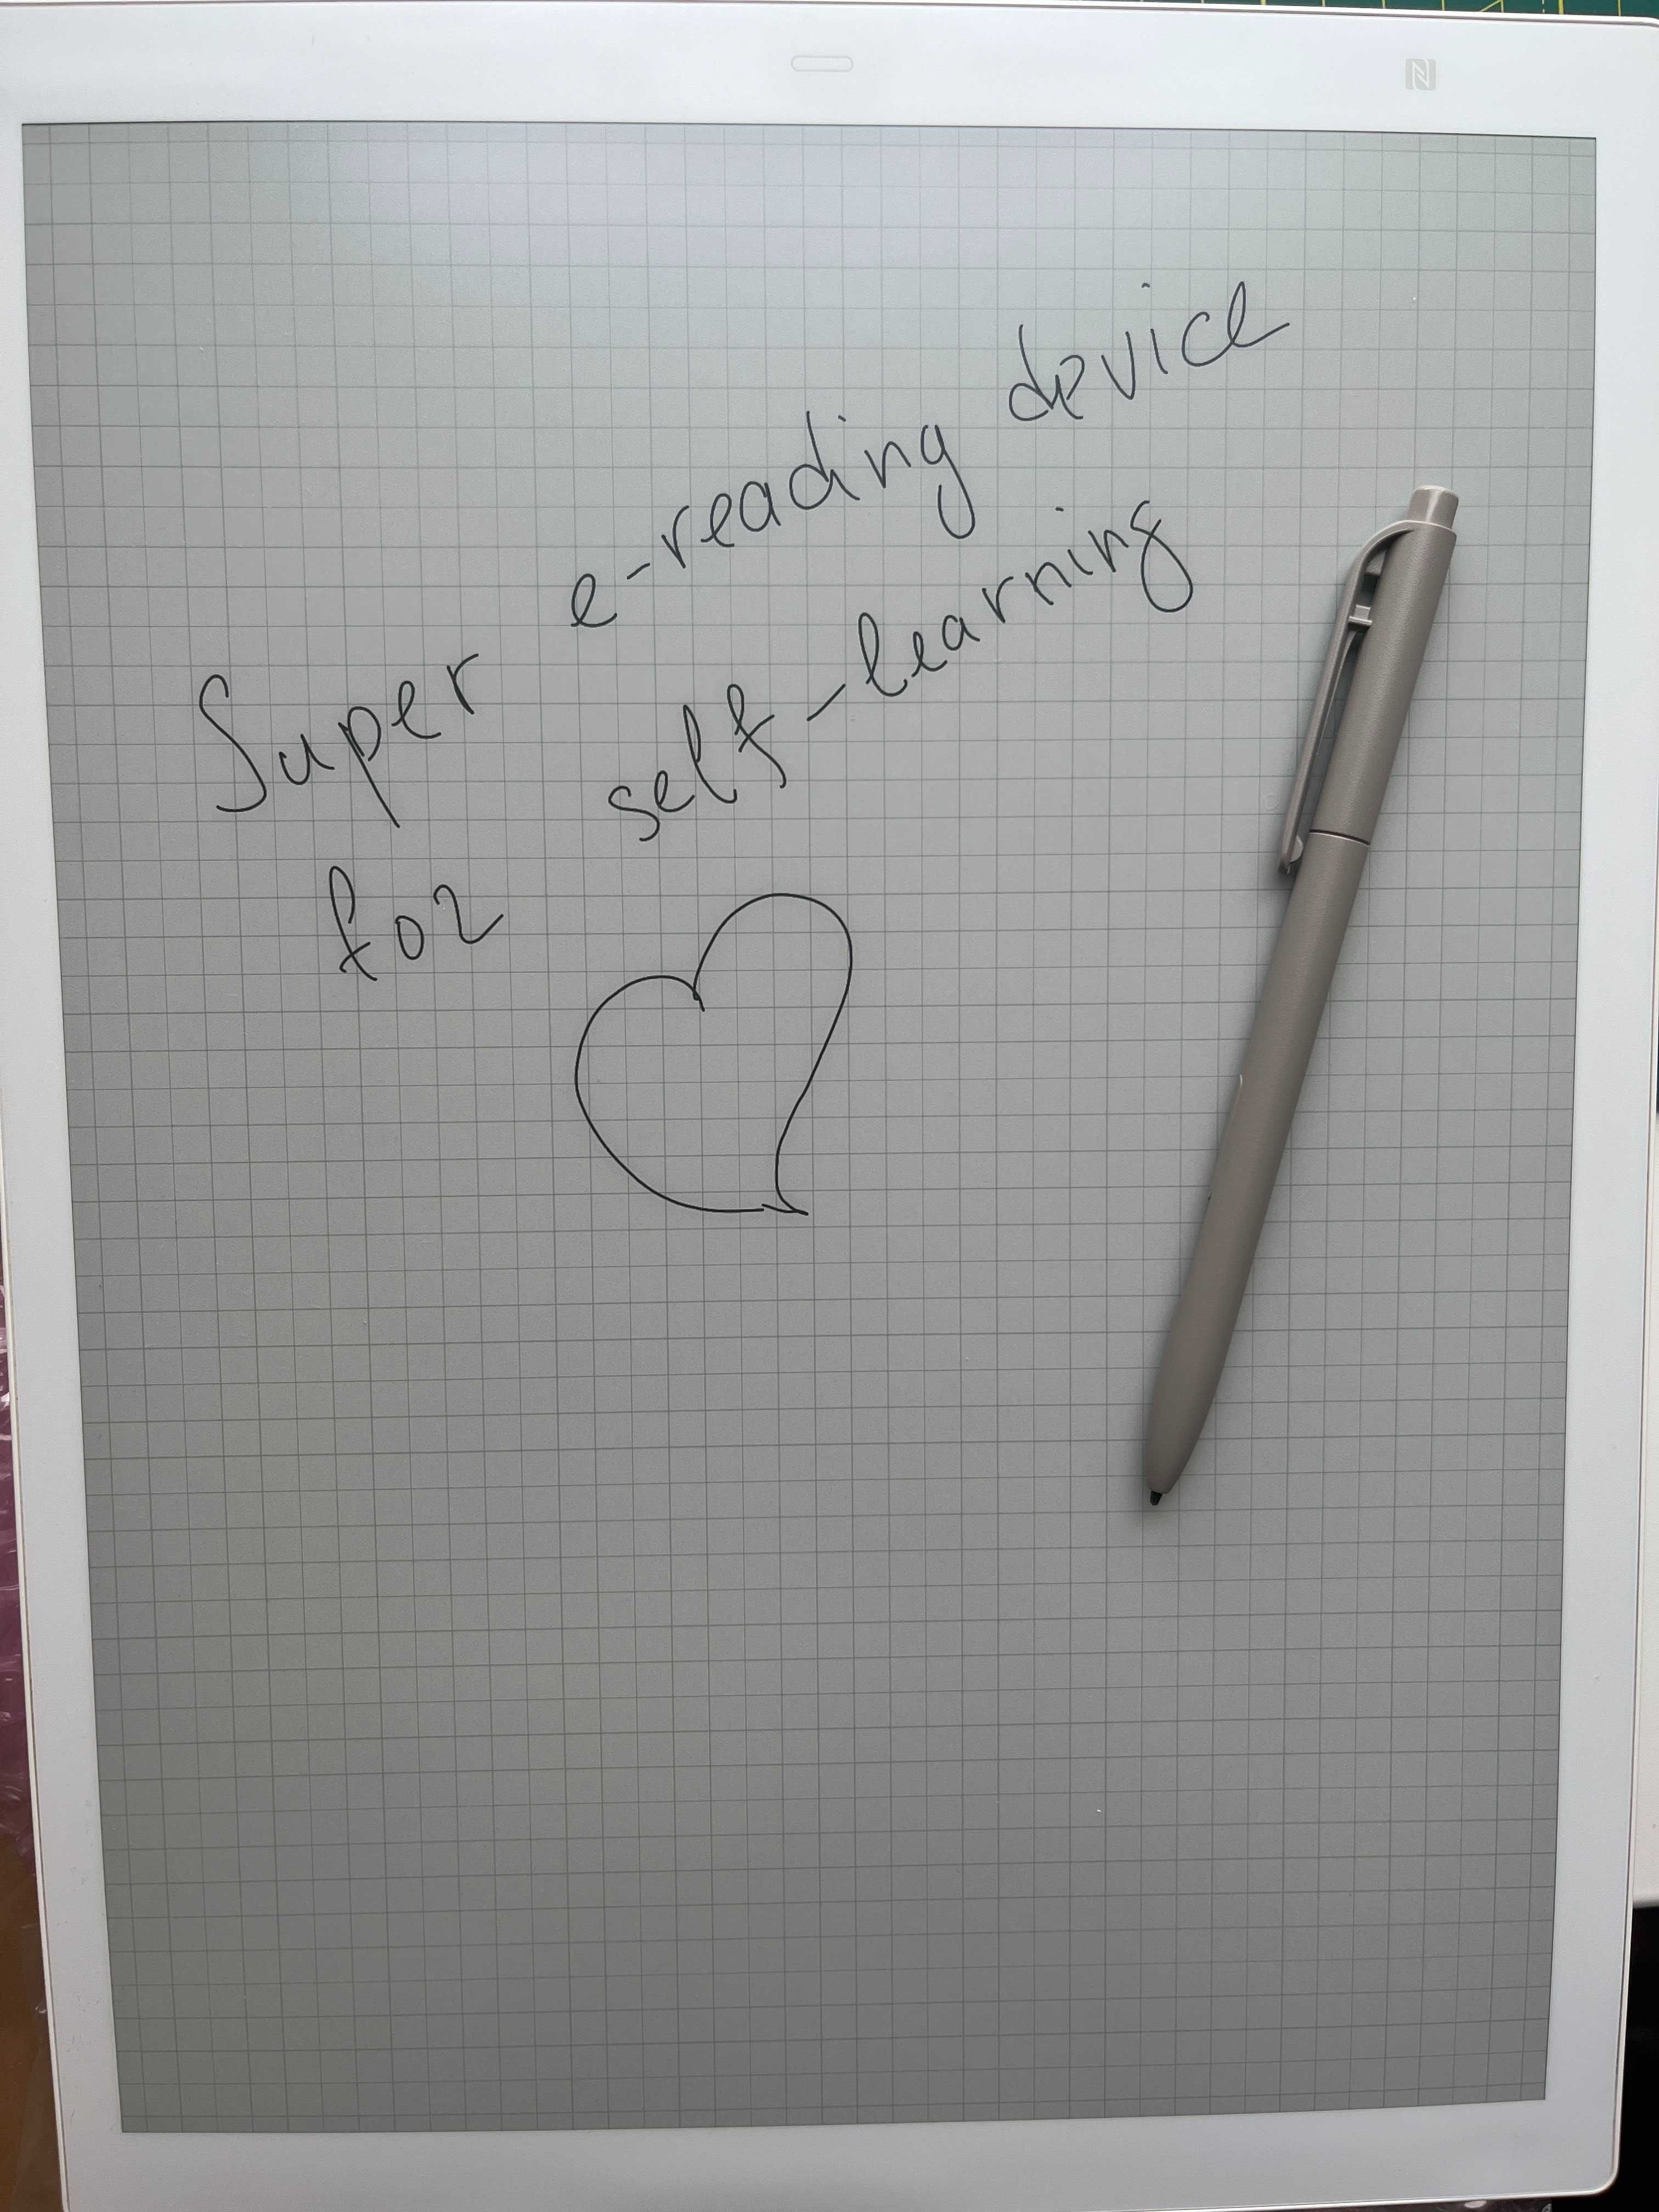 Super e-reading device
for self-learning